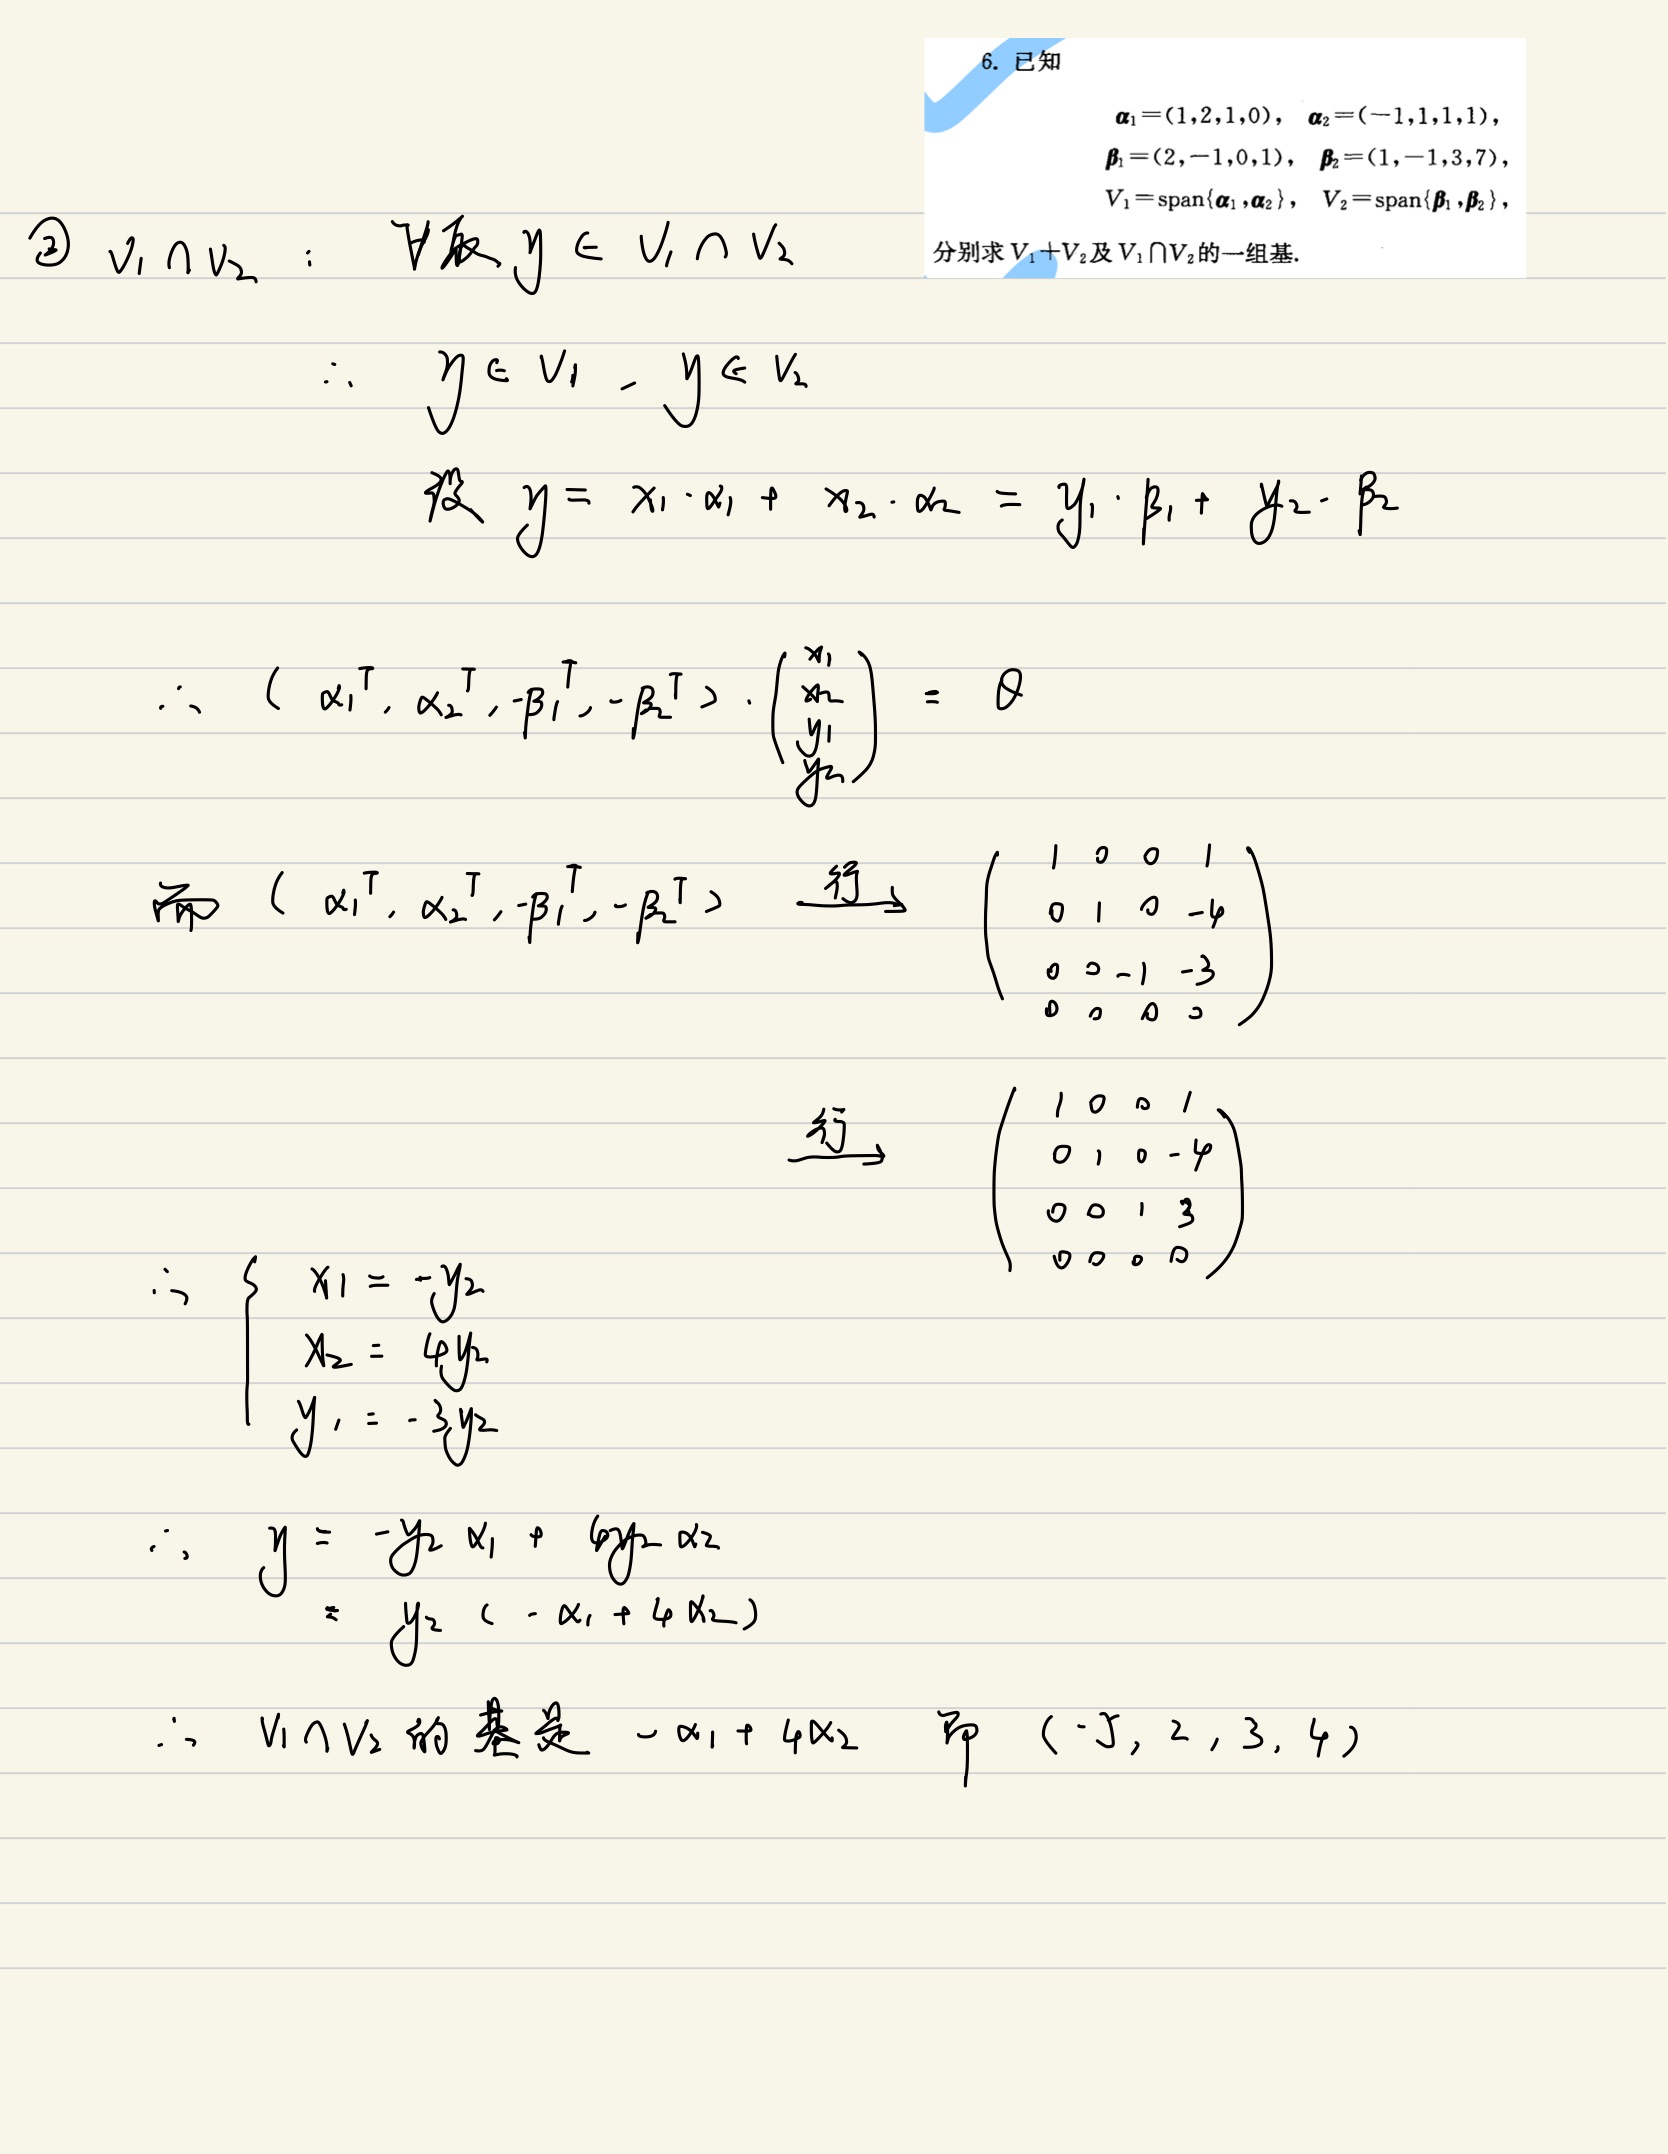 6. 已知
α₁=(1,2,1,0), α₂=(-1,1,1,1),
β₁=(2,-1,0,1), β₂=(1,-1,3,7),
V₁=span{α₁,α₂}, V₂=span{β₁,β₂},
分别求V₁+V₂及V₁∩V₂的一组基.
② V₁∩V₂ : ∀取 η ∈ V₁∩V₂
∴ η ∈ V₁ 、 η ∈ V₂
设 η = x₁·α₁ + x₂·α₂ = y₁·β₁ + y₂·β₂
∴ ( α₁ᵀ, α₂ᵀ, -β₁ᵀ, -β₂ᵀ ) ·
x₁
x₂
y₁
y₂
= θ
而 ( α₁ᵀ, α₂ᵀ, -β₁ᵀ, -β₂ᵀ ) 行→
1 0 0 1
0 1 0 -4
0 0 -1 -3
0 0 0 0
行→
1 0 0 1
0 1 0 -4
0 0 1 3
0 0 0 0
∴ { x₁ = -y₂
x₂ = 4y₂
y₁ = -3y₂
∴ η = -y₂ α₁ + 4y₂ α₂
= y₂ ( -α₁ + 4α₂ )
∴ V₁∩V₂ 的基是 -α₁ + 4α₂ 即 (-5, 2, 3, 4)